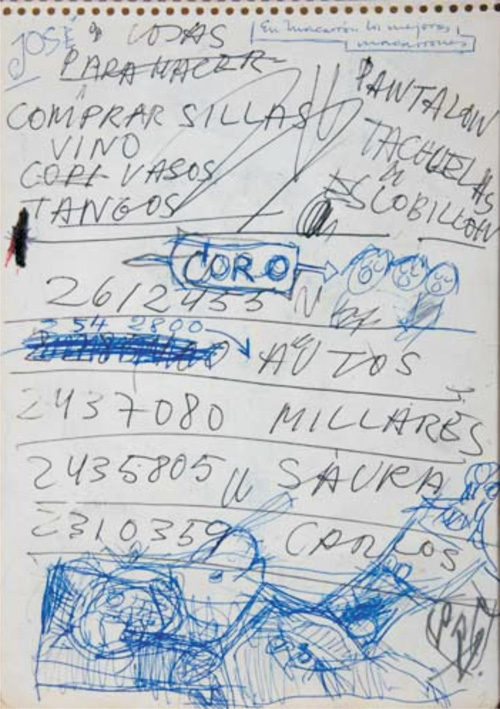 JOSÉ
COSAS
En Macarrón los mejores
macarrones
PARA HACER
COMPRAR SILLAS
VINO
COPE VASOS
TANGOS
PANTALON
TACHUELAS
ESCOBILLON
CORO
2612455
254 2800
AUTOS
2437080 MILLARES
2435805 SAURA
2310359 CARLOS